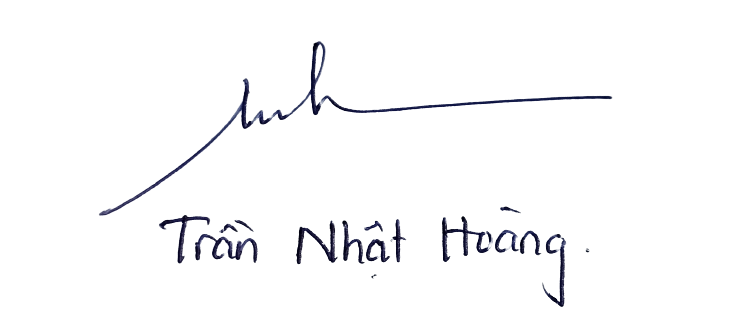 Trần Nhật Hoàng.